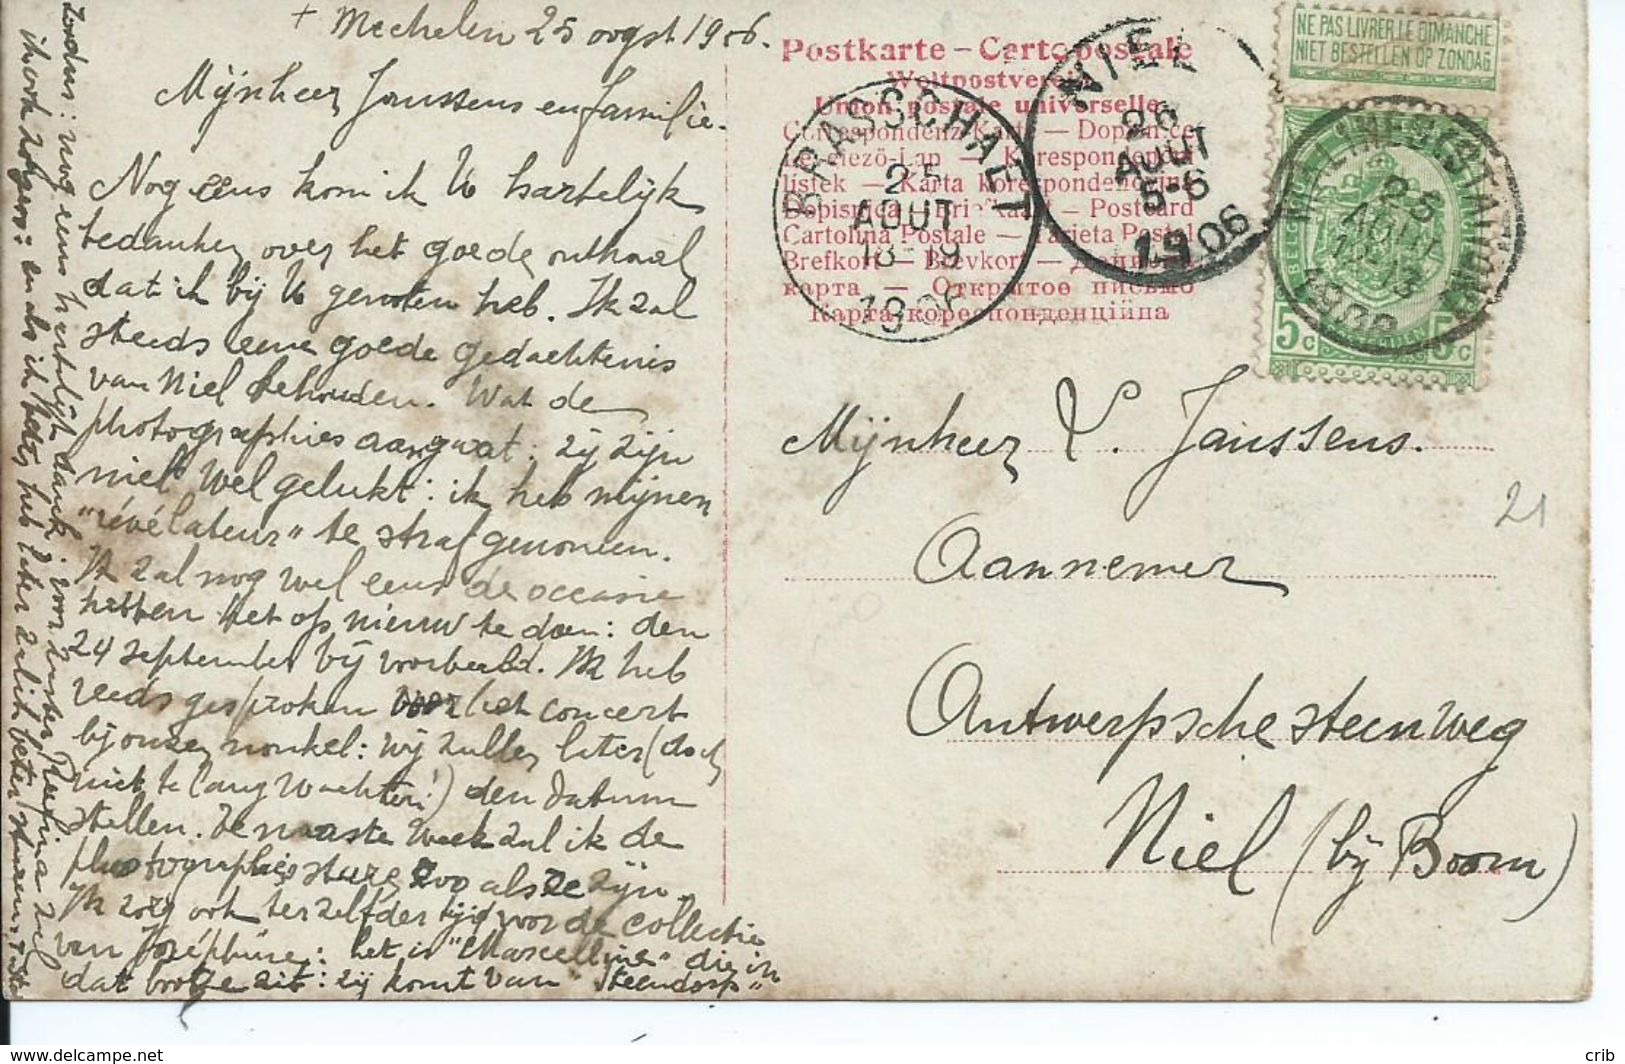 + Mechelen 25 oogst 1906.
Mijnheer Janssens en familie.
Nog eens kom ik U hartelijk
bedanken over het goede onthaal
dat ik bij U genoten heb. Ik zal
steeds eene goede gedachtenis
van Niel behouden. Wat de
photographies aangaat: zij zijn
niet wel gelukt: ik heb mijnen
"révélateur" te straf genomen.
Ik zal nog wel eens de occasie
hebben het op nieuw te doen: den
24 september bij voorbeeld. Ik heb
reeds gesproken voor het concert
bij onzen nonkel: wij zullen later (doch
niet te lang wachten!) den datum
stellen. De naaste week zal ik de
photographies sturen zoo als ze zijn.
Ik zorg ook terzelfder tijd voor de collectie
van Joséphine: het is "Marcelline" die in
dat bootje zit: zij komt van "Steendorp"
Postkarte – Carte postale
Weltpostverein
Union postale universelle
Correspondenz-Karte –
Levelező-Lap – Korespondenční
lístek – Karta korespondencyjna
Dopisnica – Briefkaart – Postcard
Cartolina Postale – Tarjeta Postal
Brefkort – Brevkort –
карта – Открытое письмо
Карта кореспонденційна
BRASSCHAET
25
AOUT
18-19
1906
NIEL
26
AOUT
5-6
1906
NE PAS LIVRER LE DIMANCHE
NIET BESTELLEN OP ZONDAG
25
AOUT
12-13
5c 5c
Mijnheer Janssens.
Aannemer
Antwerpsche steenweg
Niel (bij Boom)
21
crib